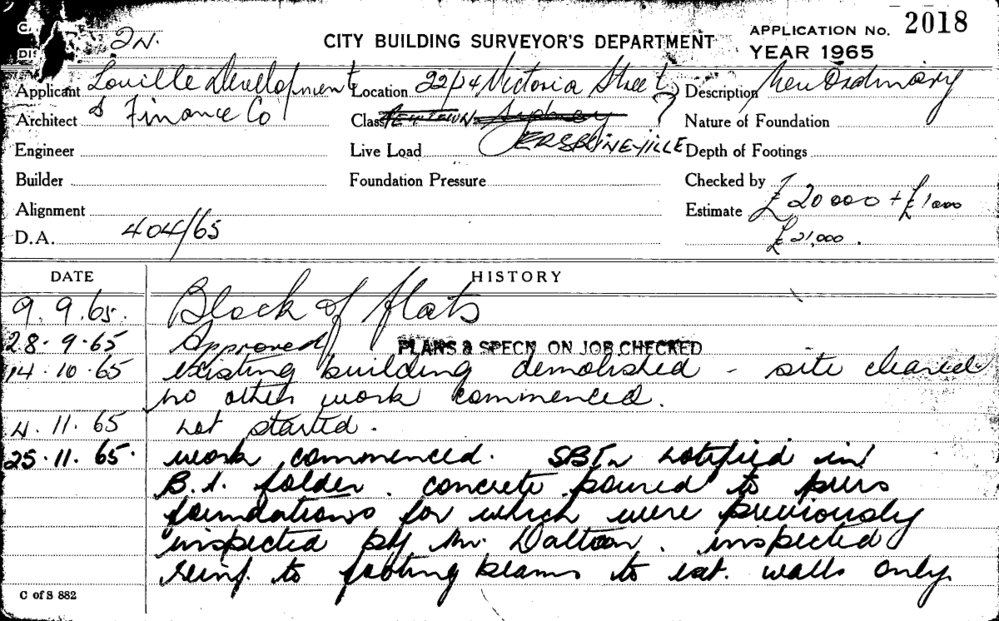 2N.
CITY BUILDING SURVEYOR'S DEPARTMENT
APPLICATION No. 2018
YEAR 1965
Applicant Louville Development Location 22/24 Victoria Street Description New Ordinary
Architect & Finance Co Class NEWTOWN Sydney Nature of Foundation
Engineer Live Load ERSKINEVILLE Depth of Footings
Builder Foundation Pressure Checked by
Alignment Estimate £20000 + £1000
D.A. 404/65 £21,000.
DATE HISTORY
9.9.65. Block of flats
28.9.65 Approved PLANS & SPECN ON JOB CHECKED
14.10.65 existing building demolished - site cleared
no other work commenced.
4.11.65 not started.
25.11.65. work commenced. notified in
B.I. folder. concrete poured to piers
foundations for which were previously
inspected by Mr. Dalton. inspected
reinf. to footing beams to ext. walls only.
C of S 882